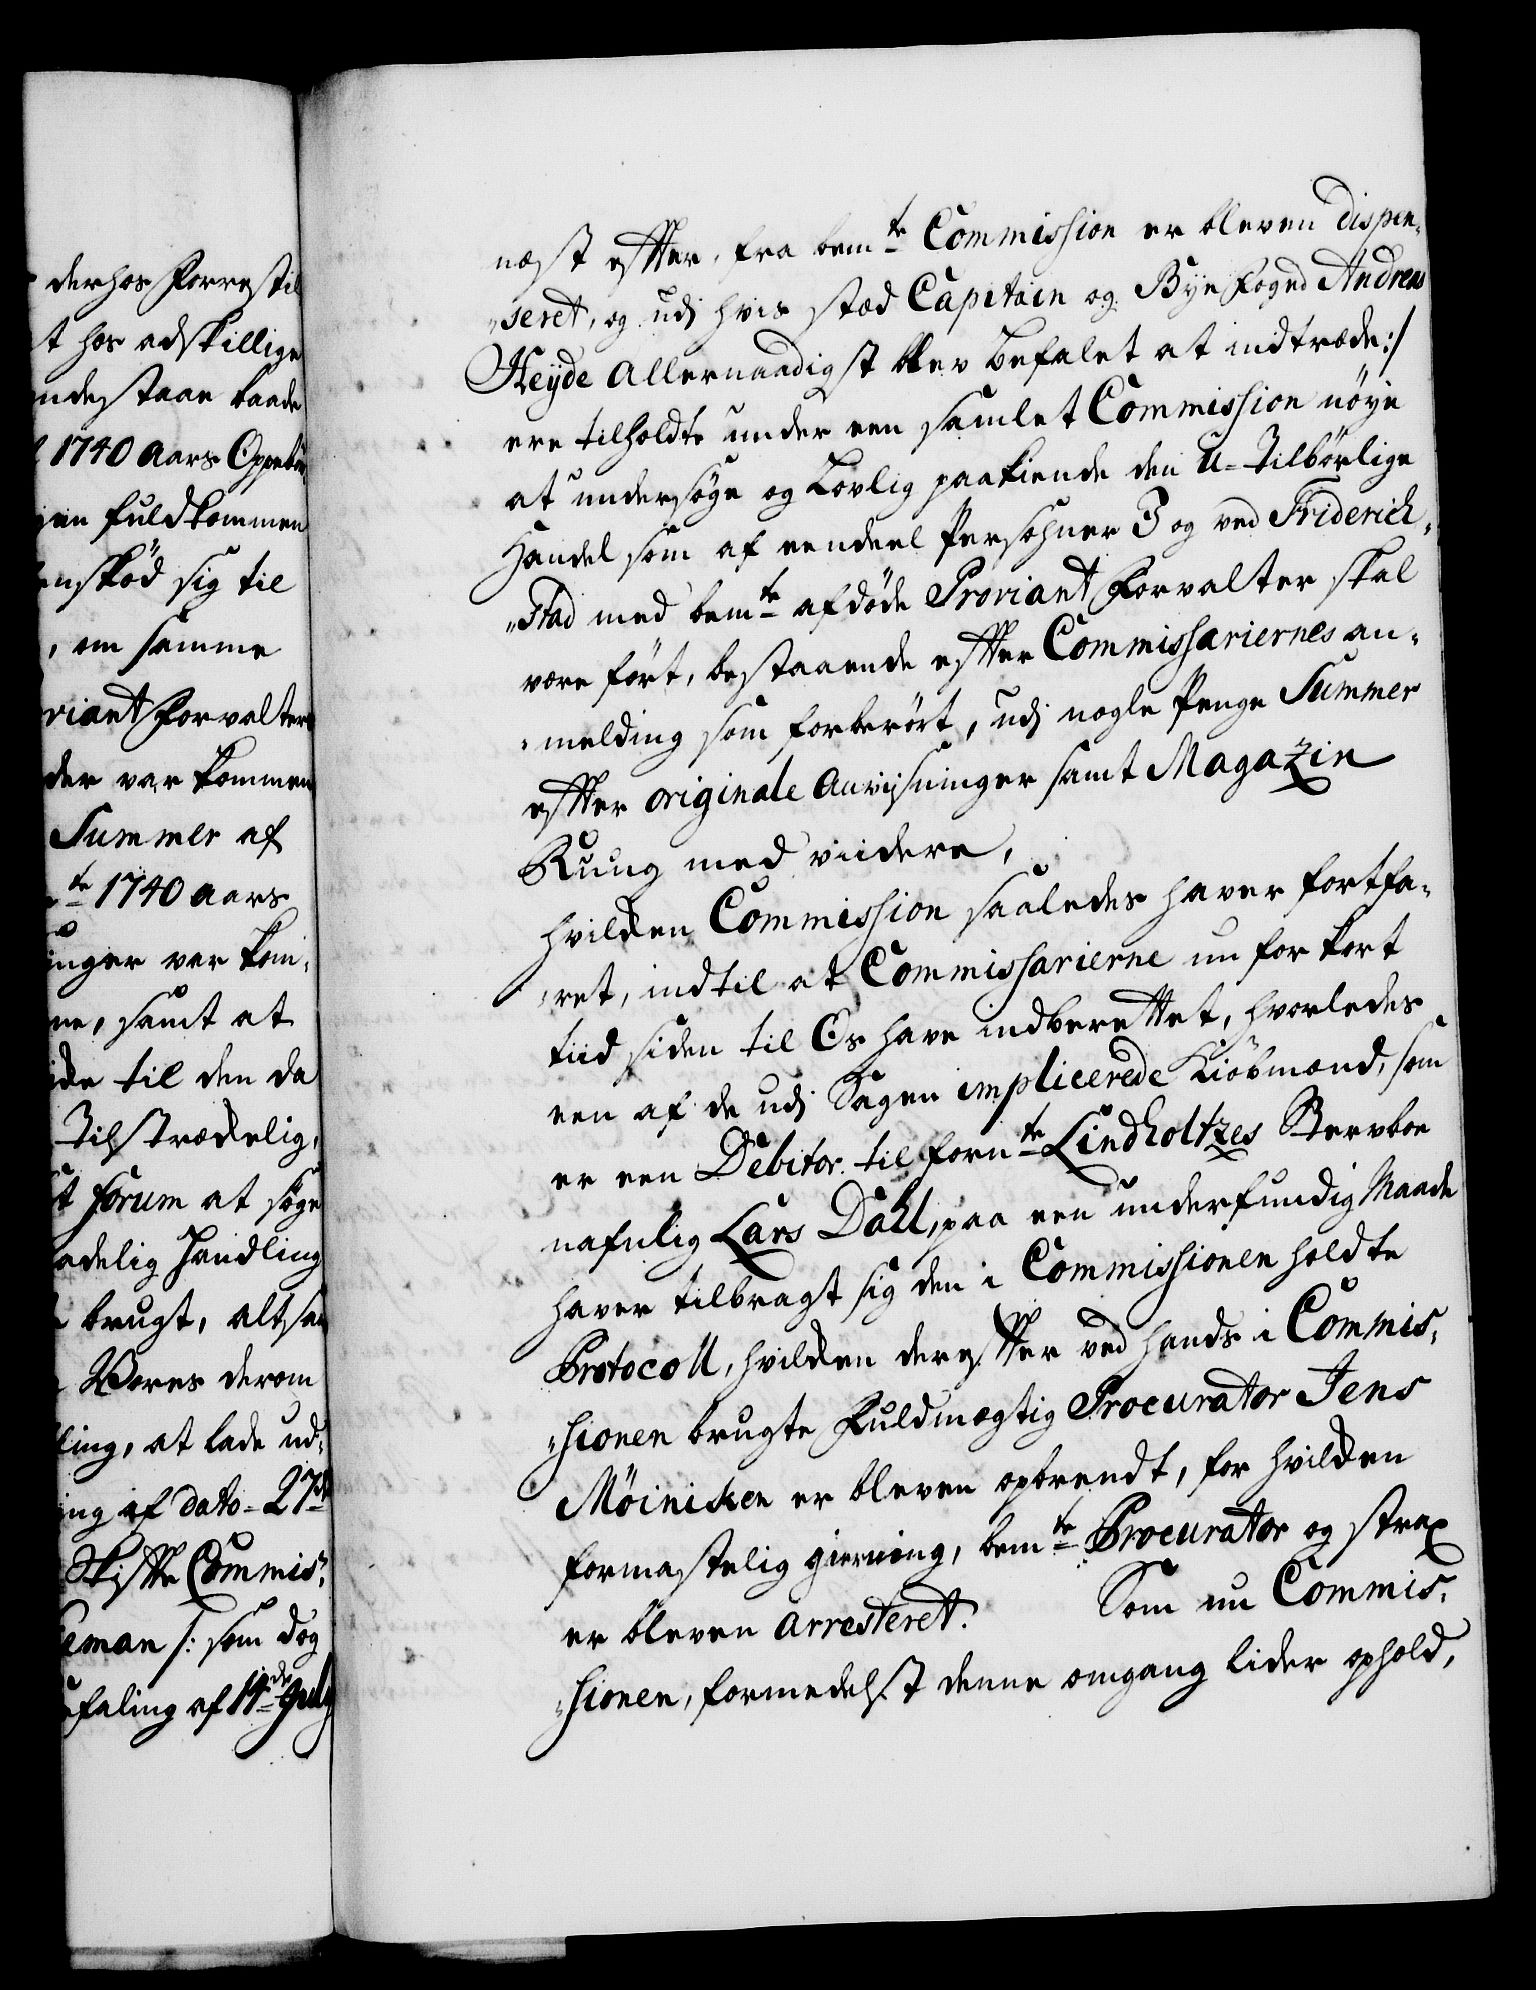 derhos Forrestil
t hos adskillige
ndestaae baade
1740 Aars Oppebör
gen fuldkommen
nsköd sig til
, om samme
viant Forvalter
der var kommen
Summer af
te 1740 Aars
inger var kom-
ne, samt at
de til den da
Tilstrædelig,
t forum at søge
adelig Handling
brugt, altsaa
Vores derom
ling, at lade ud-
ing af dato 27de
Skifte Commis-
eman /: som dog
faling af 14de July
næst efter, fra bemte Commission er bleven dispen-
„seret, og udj hvis stæd Capitain og Bye Foged Andreas
Heyde Allernaadigst blev befalet at indtræde:/
ere tilholdte under een samlet Commission nöye
at undersöge og Lovlig paakiende den U-Tilbörlige
Handel som af eendeel Persohner I og ved Friderich-
„Stad med bemte afdöde Proviant Forvalter skal
være fört, bestaaende efter Commissariernes an-
„melding som forberört, udj nogle Penge Summer
efter originale Anvisninger samt Magazin
Rung med viidere,
hvilken Commission saaledes haver fortfa-
„ret, indtil at Commissarierne nu for kort
tiid siden til Os have indberettet, hvorledes
een af de udj Sagen implicerede Kiöbmænd, som
er een Debitor til fornte Lindholtzes Stervboe
nafnlig Lars Dahl, paa een underfundig Maade
haver tilbragt sig den i Commissionen holdte
Protocoll, hvilken derefter ved hands i Commis-
„sionen brugte Fuldmægtig Procurator Jens
Möiniken er bleven opbrendt, for hvilken
formastelig gierning, bemte Procurator og strax
er bleven Arresteret. Som nu Commis-
„sionen, formedelst denne omgang lider ophold,